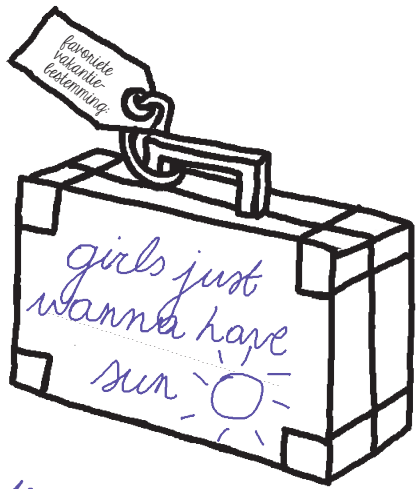 favoriete
vakantie-
bestemming:
girls just
wanna have
sun